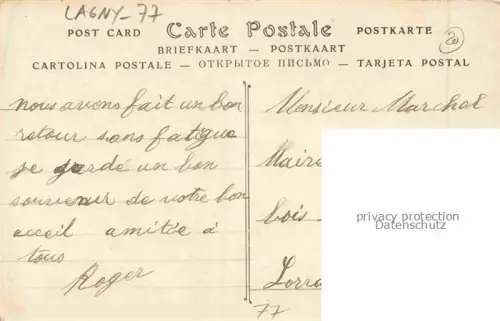 LAGNY_77
POST CARD Carte Postale POSTKARTE
BRIEFKAART — POSTKAART
CARTOLINA POSTALE — ОТКРЫТОЕ ПИСЬМО — TARJETA POSTAL
20
nous avons fait un bon
retour sans fatigue
je garde un bon
souvenir de votre bon
acceil amitée à
tous
Roger
Monsieur Marchal
Maire
bois
Lorra
77
privacy protection
Datenschutz